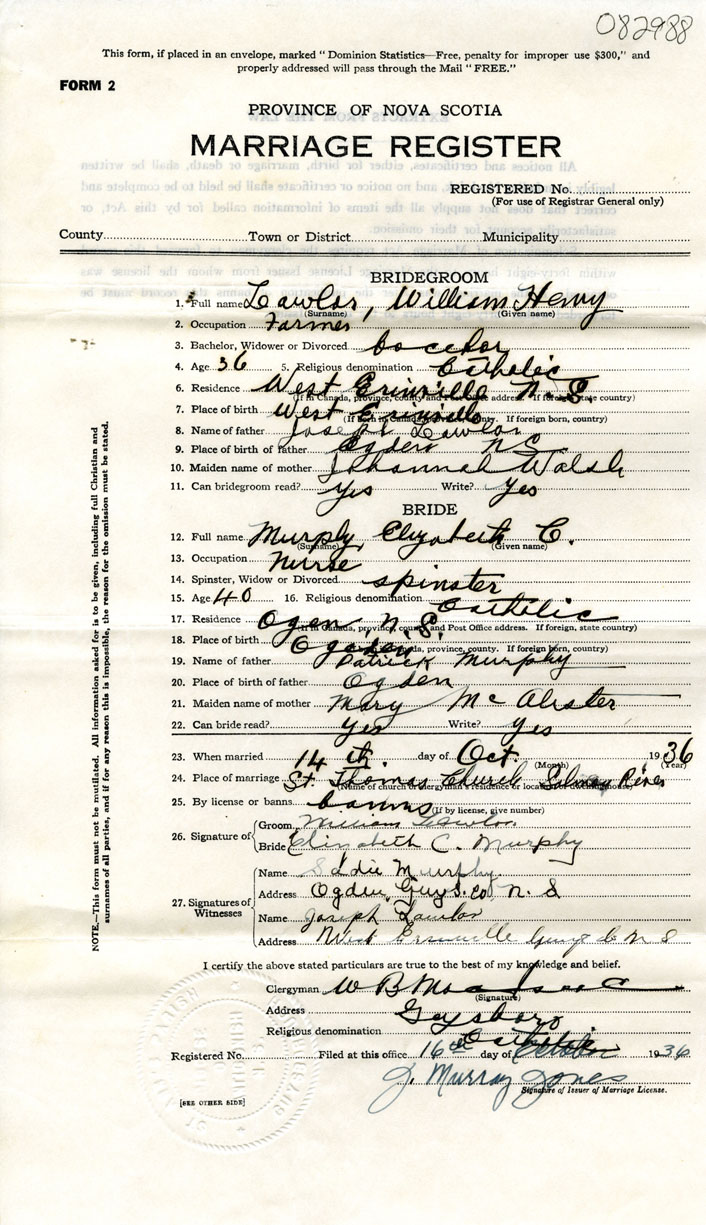 082988
This form, if placed in an envelope, marked "Dominion Statistics—Free, penalty for improper use $300," and
properly addressed will pass through the Mail "FREE."
FORM 2
PROVINCE OF NOVA SCOTIA
MARRIAGE REGISTER
REGISTERED No.
(For use of Registrar General only)
County Town or District Municipality
BRIDEGROOM
1. Full name Lawlor, William Henry
(Surname) (Given name)
2. Occupation Farmer
3. Bachelor, Widower or Divorced
4. Age 36 5. Religious denomination Catholic
6. Residence West Erinville N. S.
(If in Canada, province, county and Post Office address. If foreign, state country)
7. Place of birth West Erinville
(If born in Canada, province, county. If foreign born, country)
8. Name of father Joseph Lawlor
9. Place of birth of father Ogden NS
10. Maiden name of mother Johannah Walsh
11. Can bridegroom read? Yes Write? Yes
BRIDE
12. Full name Murphy Elizabeth C.
(Surname) (Given name)
13. Occupation Nurse
14. Spinster, Widow or Divorced spinster
15. Age 40 16. Religious denomination Catholic
17. Residence Ogen N. S.
(If in Canada, province, county and Post Office address. If foreign, state country)
18. Place of birth Ogden
(If born in Canada, province, county. If foreign born, country)
19. Name of father Patrick Murphy
20. Place of birth of father Ogden
21. Maiden name of mother Mary McAlister
22. Can bride read? Yes Write? Yes
23. When married 14 th. day of Oct. 1936
(Month) (Year)
24. Place of marriage St. Thomas Church Salmon River
25. By license or banns banns
(If by license, give number)
26. Signature of
Groom William Lawlor
Bride Elizabeth C. Murphy
27. Signatures of Witnesses
Name Eddie Murphy
Address Ogden, Guys. Co, N. S
Name Joseph Lawlor
Address West Erinville Guys Co N S
I certify the above stated particulars are true to the best of my knowledge and belief.
Clergyman W B
(Signature)
Address Guysboro
Religious denomination Catholic
Registered No. Filed at this office 16th day of October 1936
J. Murray Jones
Signature of Issuer of Marriage License.
[SEE OTHER SIDE]
NOTE.—This form must not be mutilated. All information asked for is to be given, including full Christian and
surnames of all parties, and if for any reason this is impossible, the reason for the omission must be stated.